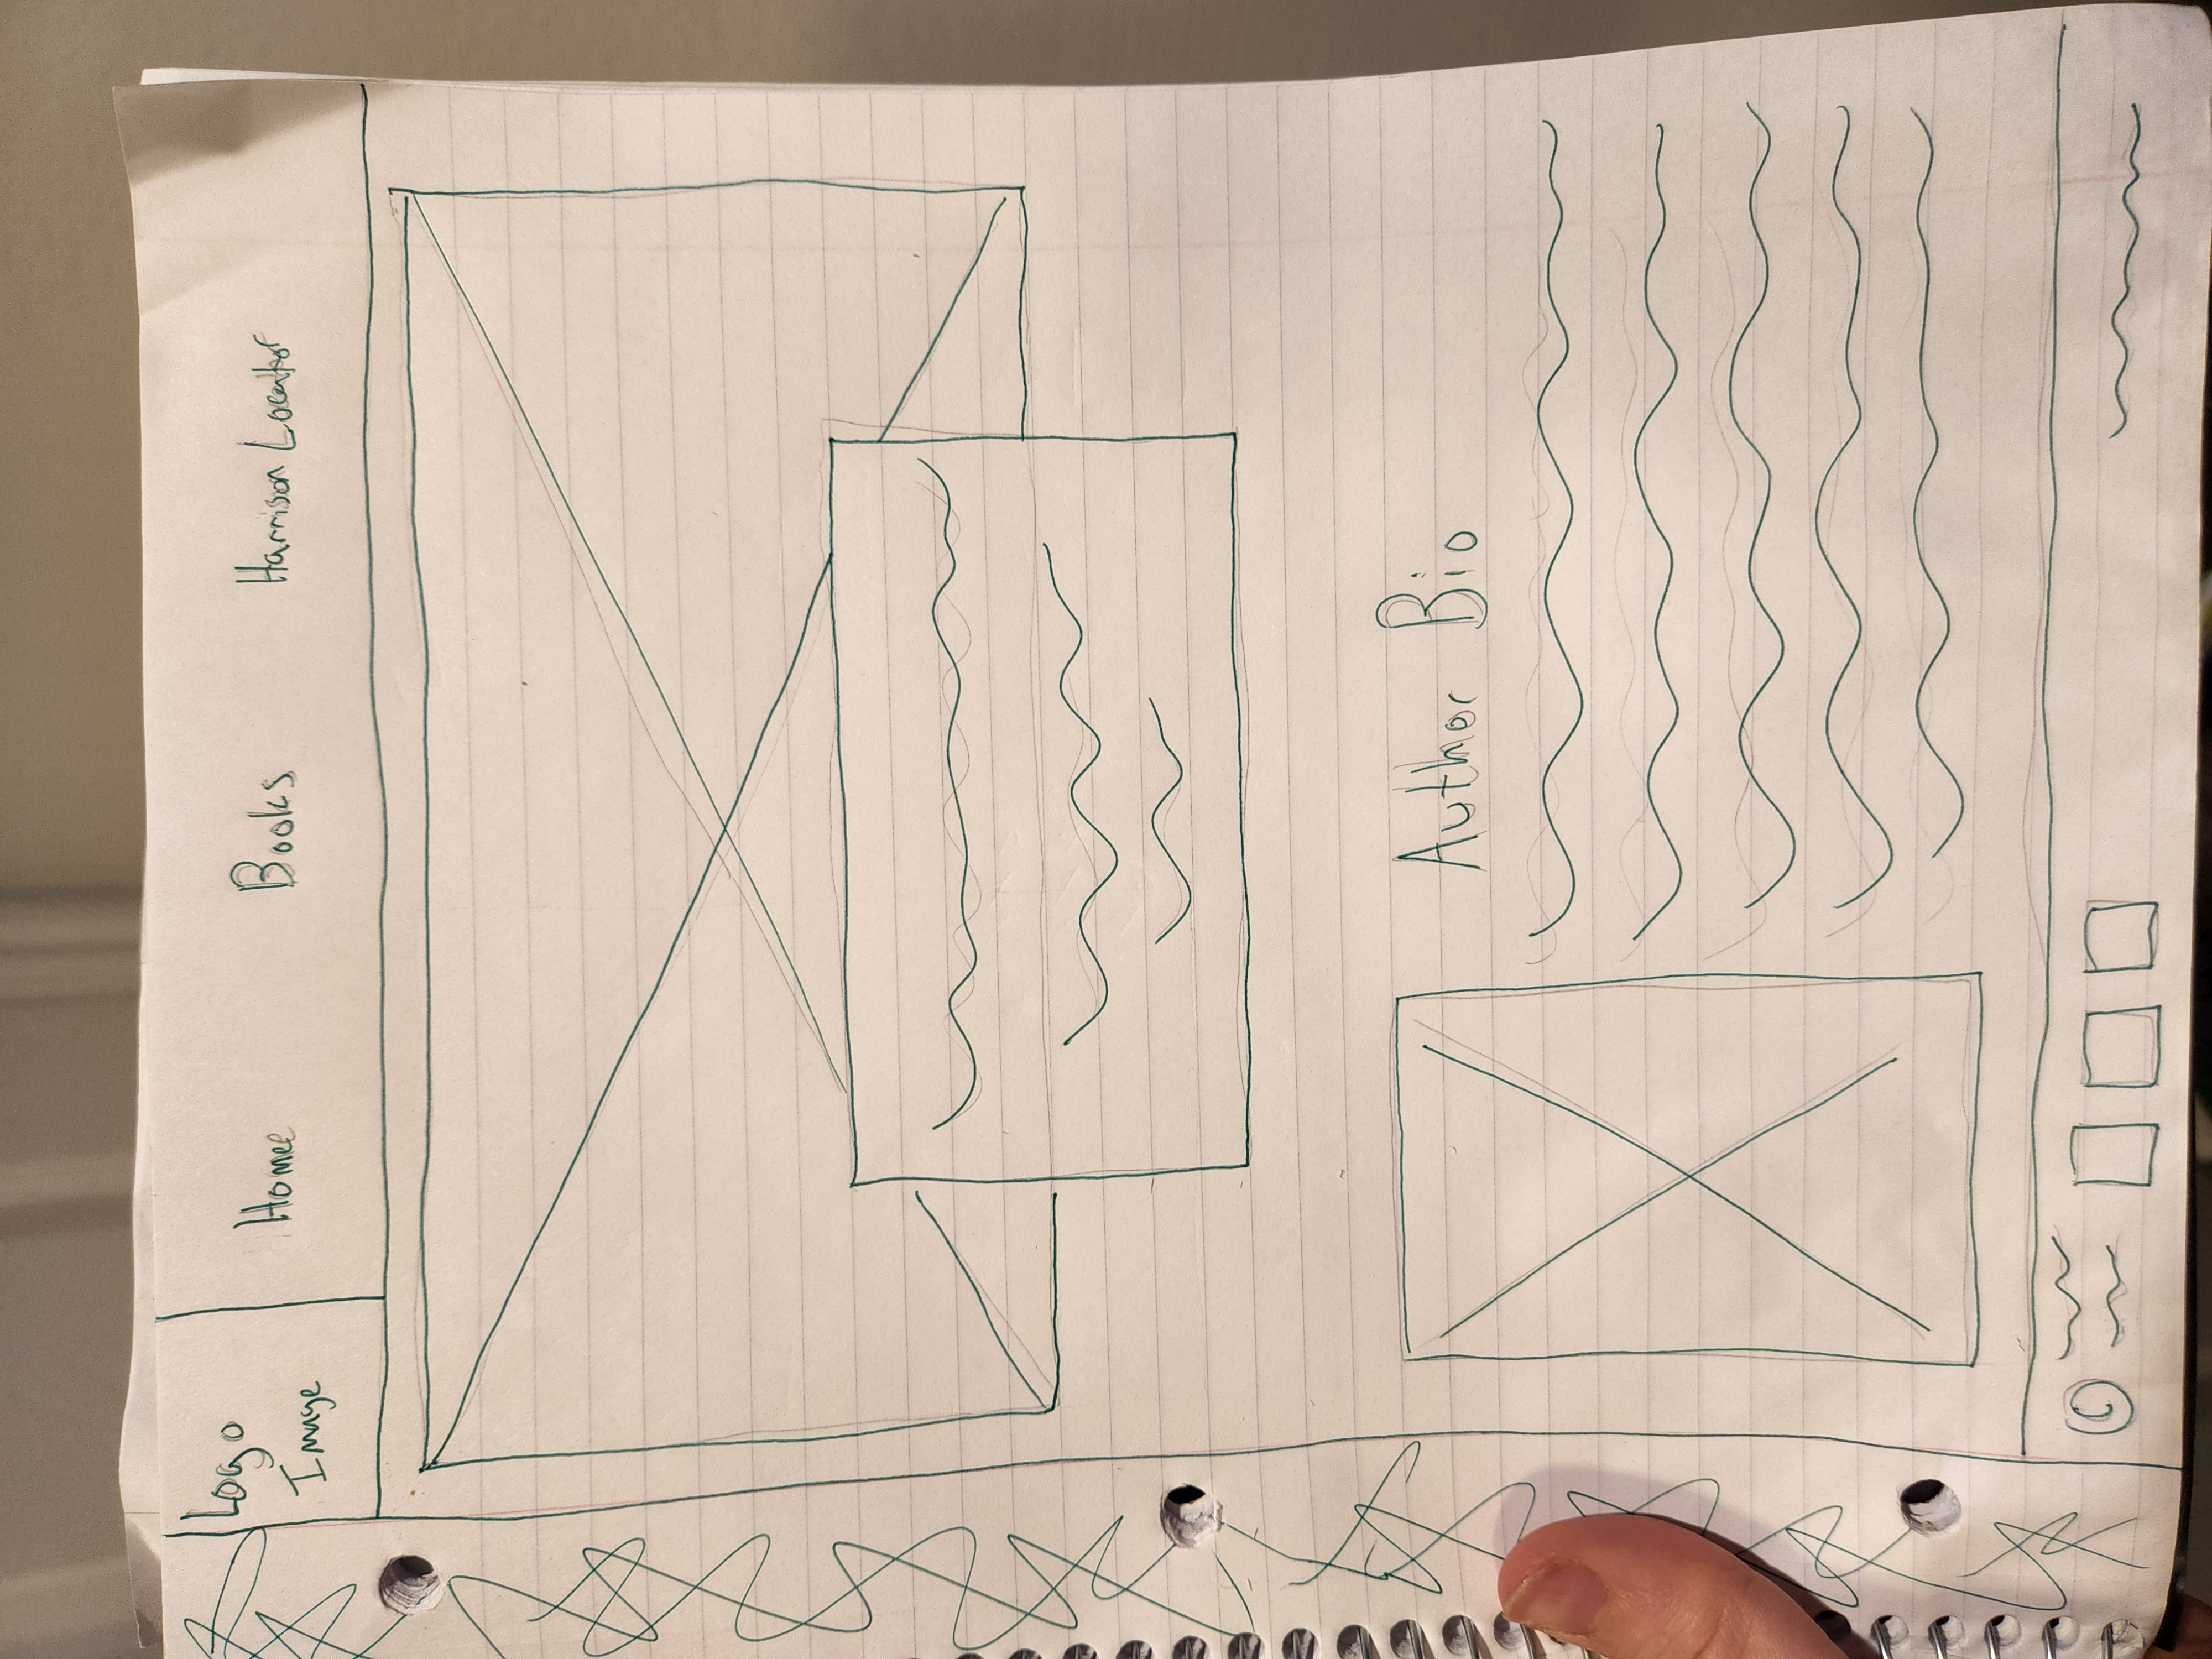 Logo
Image
Home
Books
Harrison Locator
Author Bio
©